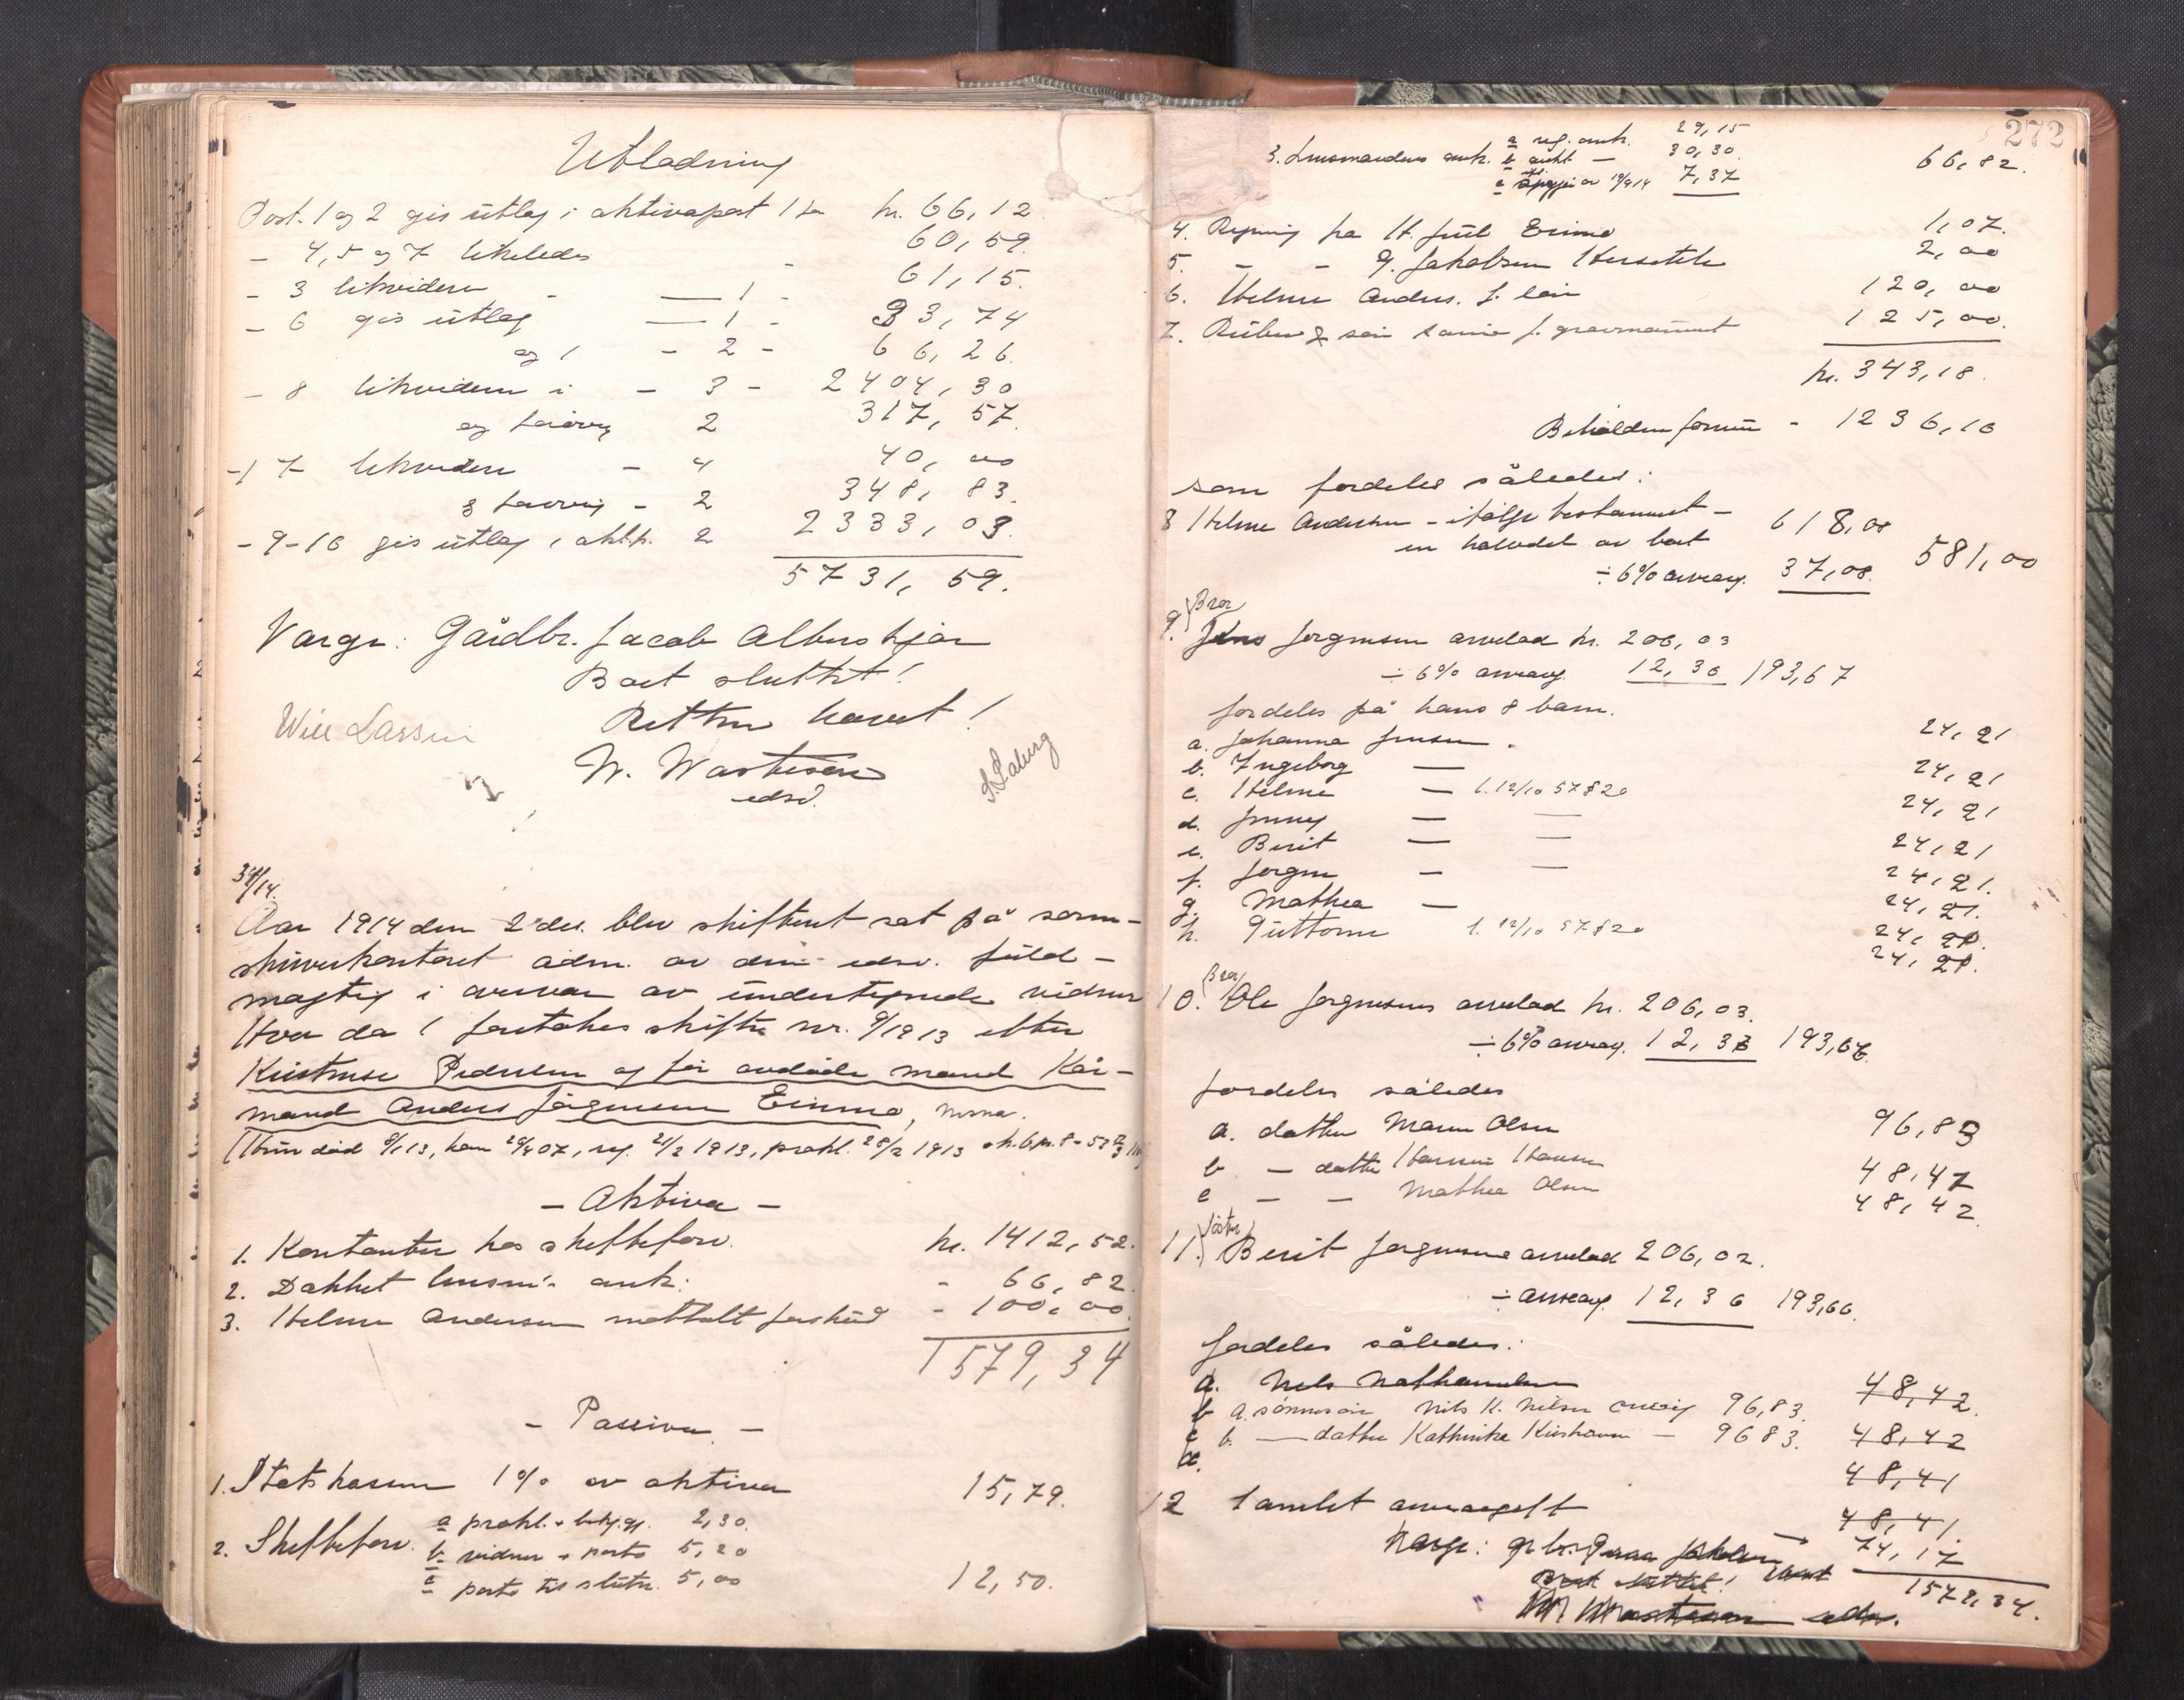 Utlodning
Post. 1 og 2 gis utlæg i aktivapost 1 kr. 66,12
- 4, 5 og 7 likeledes - 60,59
- 3 likvideres - — 1 - 61,15.
- 6 gis utlæg — 1 - 33,74
og i - 2 - 66,26.
- 8 likvideres i - 3 - 2404,30
og forøvrig 2 317,57.
- 17 likvideres - 4 40,00
og forøvrig - 2 348,83.
- 9-16 gis utlæg i aktp. 2 2333,03.
5731,59.
Værge: Gårdbr. Jacob Albertskjær
Boet sluttet!
Retten hævet!
Will Lassen
W. Wastesen
edsv.
S. Solberg
34/14.
Aar 1914 den 2 des. blev skifteret sat på soren-
skriverkontoret adm. av den edsv. fuld-
mægtig i overvær av undertegnede vidner
Hvor da 1 foretokes skifte nr. 9/1913 efter
Kirstense Pedersen og før avdøde mand Kår-
mand Anders Jørgensen Eirmo, Nesna.
(Hun død 8/1 13, han 29/4 07, reg. 21/2 1913, prokl. 28/2 1913
- Aktiva -
1. Kontanter hos skifteforv. kr. 1412,52.
2. Dækket lensm's auk: - 66,82
3. Helmer Andersen mottatt forskud - 100,00.
1579,34
- Passiva -
1. Statskassen 1% av aktiva 15,79.
2. Skifteforv. a prokl. + bekj.gj. 2,30.
b. vidner + porto 5,20
c porto til slutn. 5,00 12,50.
272
3. Lensmandens omk. a reg. omk. 29,15
b aukt — 30,30.
c 7,37 66,82.
4. Regning fra H. Juul Eirmo 1,07.
5. - - J. Jakobsen Husvik 2,00
6. Helmer Anders. f. lån 120,00
7. samme f. gravmonument 125,00.
kr. 343,18.
Beholden formue - 1236,16
som fordeles således:
8 Helmer Andersen - ifølge testament -
en halvdel av boet 618,08
÷ 6% arveavg. 37,08. 581,00
Bror
9. Jens Jørgensens arvelod kr. 206,03
÷ 6% arveavg. 12,36 193,67
fordeles på hans 8 barn.
a. Johanna Jensen. 24,21
b. Ingeborg — 24,21
c. Helmer — l. 12/10 57 § 20 24,21
d. Jenny — — 24,21
e. Berit — — 24,21.
f. Jørgen — — 24,21.
g. Mathea — 24,20.
h. Guttorm l. 12/10 57 § 20 24,20.
Bror
10. Ole Jørgensens arvelod kr. 206,03.
÷ 6% arveavg. 12,36 193,66.
fordeles således
a. datter Maren Olsen 96,83
b - datter Hansine Hansen 48,42
c - - Mathea Olsen 48,42.
Søster
11. Berit Jørgensens arvelod 206,02.
÷ arveavg. 12,36 193,66.
fordeles således:
a. Nels Nathanielsen 48,42.
b a. sønnesøn Nils K. Nilsen 96,83. 48,42
c b. — datter Kathinka Kirshaun — 96 83. 48,41
d. 48,41.
12 samlet arveavgift 74,17
Værge: Jakobsen
1579,34.
Boet sluttet!
W. Wastesen edsv.